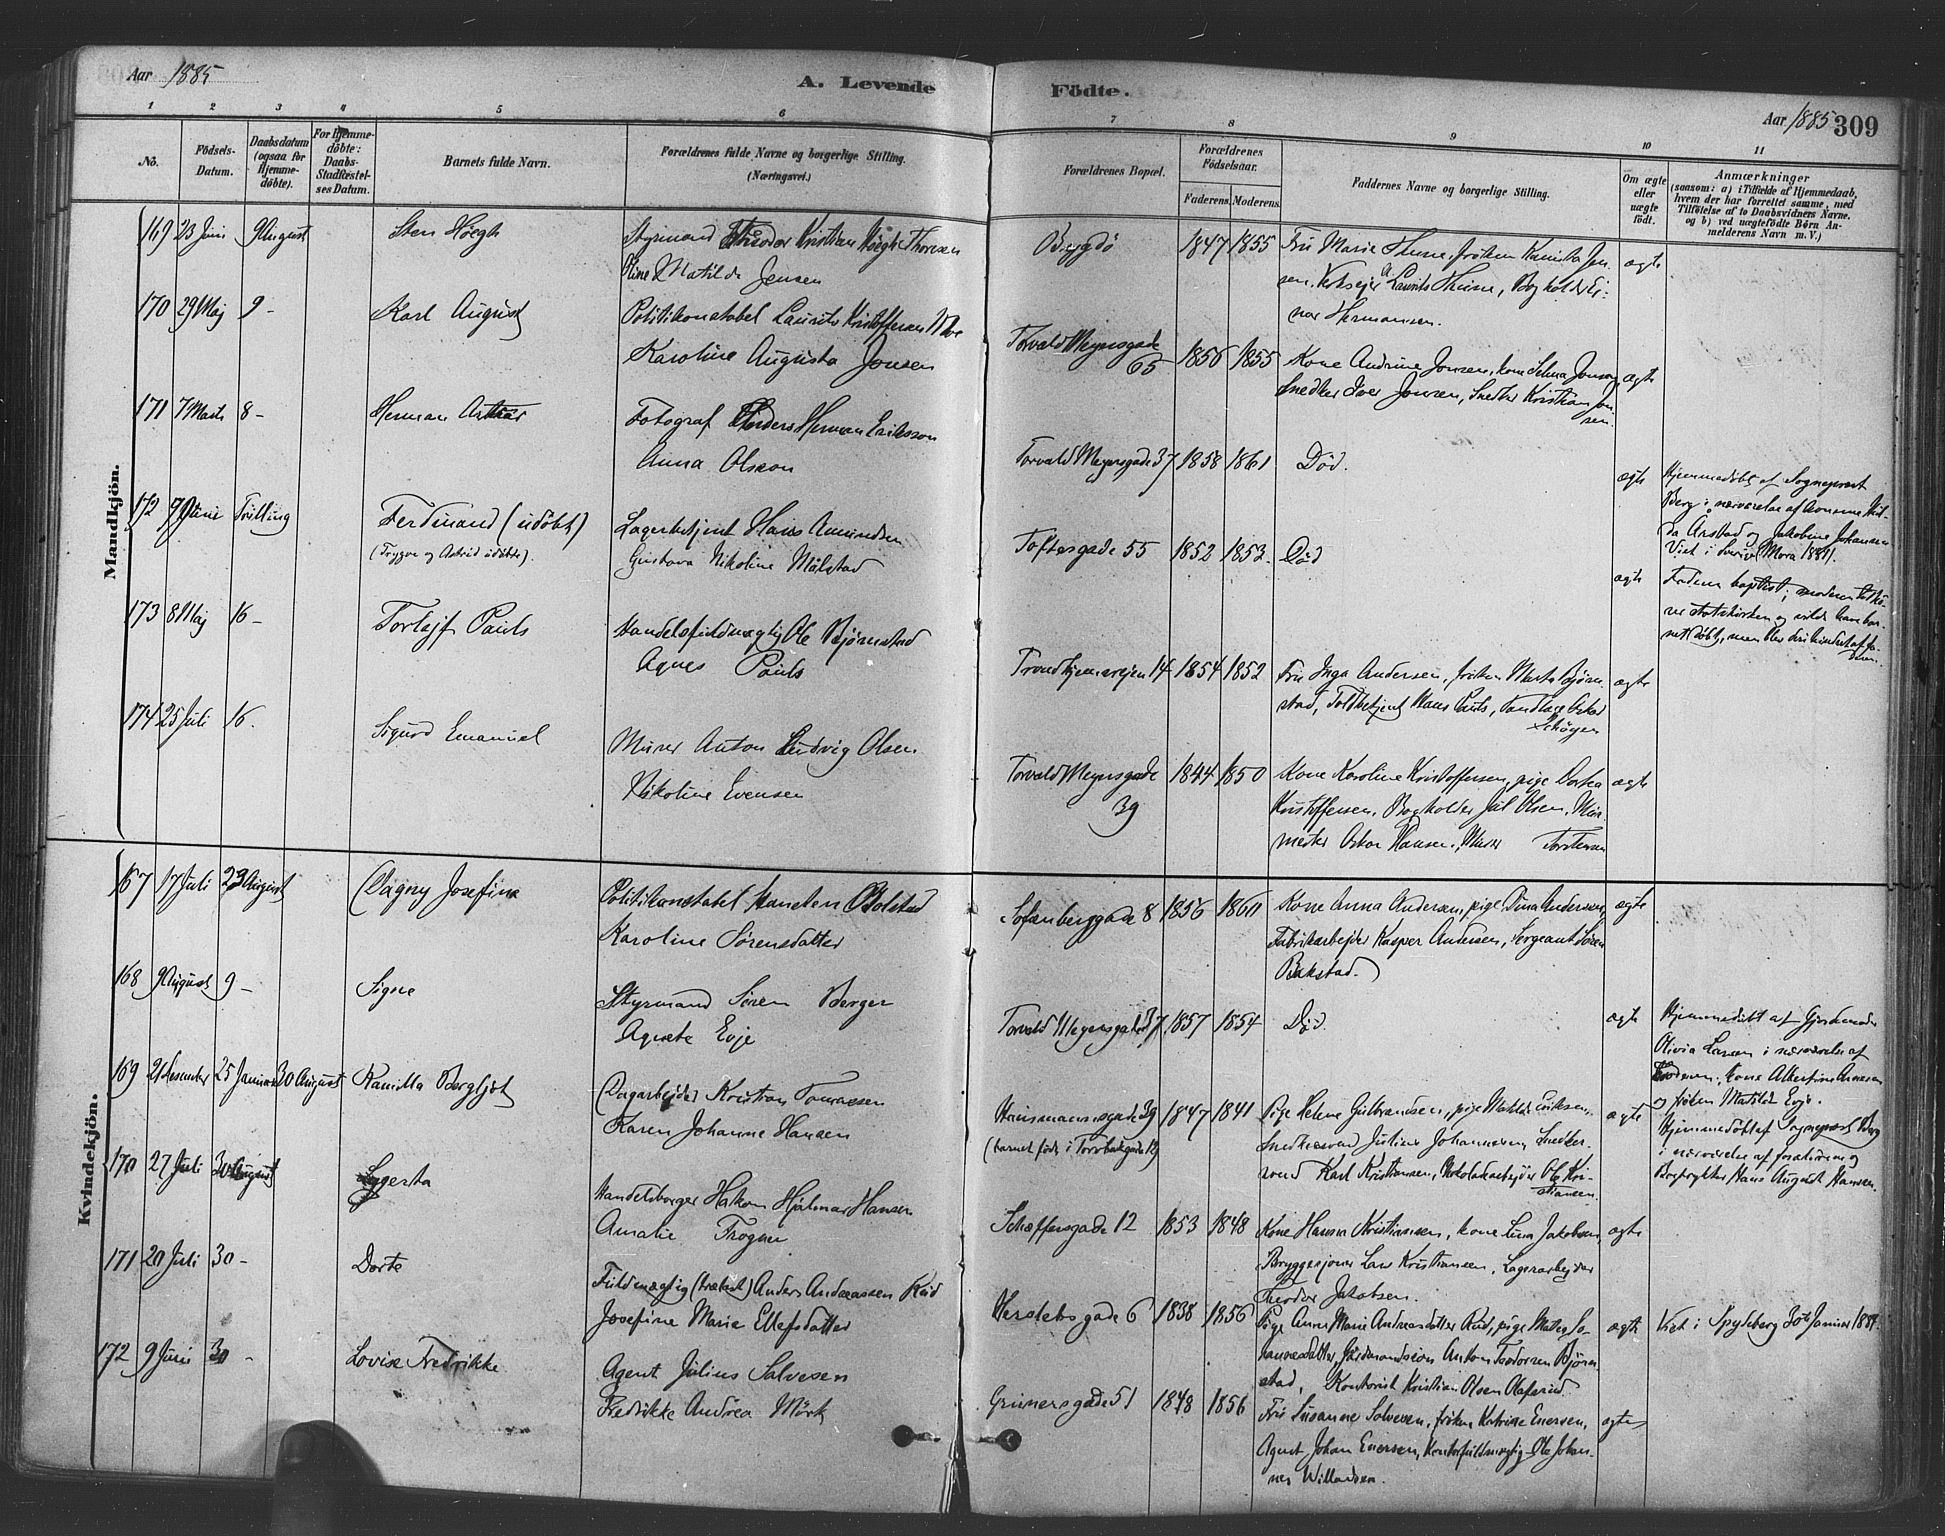 Aar 1885
A. Levende
Födte.
Aar 1885
309
1 2 3 4 5 6 7 8 9 10 11
No.
Födsels-
Datum.
Daabsdatum
(ogsaa for
Hjemme-
döbte).
For Hjemme-
döbte:
Daabs-
Stadfæstel-
ses Datum.
Barnets fulde Navn.
Forældrenes fulde Navne og borgerlige Stilling.
(Næringsvei.)
Forældrenes Bopæl.
Forældrenes
Födselsaar.
Faderens. Moderens.
Faddernes Navne og borgerlige Stilling.
Om ægte
eller
uægte
födt.
Anmærkninger
(saasom: a) i Tilfælde af Hjemmedaab,
hvem der har forrettet samme, med
Tilföielse af to Daabsvidners Navne,
og b) ved uægtefödte Börn An-
melderens Navn m. V.)
Mandkjön.
169 23 Juni 9 August
Sten Höegh
Styrmand Theodor Kristian Höegh Thoresen
Oline Matilde Jensen
Bygdö
1847 1855
Fru Marie Thune, fröken Kamilla Jen-
sen, Laurits Thune, Bogholder Ej-
nar Hermansen.
ægte
170 29 Maj 9 -
Karl August
Politikonstabel Laurits Kristoffersen Moe
Karoline Augusta Jonsen
Torvald Meyersgade
65
1856 1855
Kone Andrine Jonsen, kone Selma Jonsen,
Snedker Iver Jonsen, Snedker Kristian Jon-
sen.
ægte
171 7 Marts 8 -
Herman
Fotograf Anders Herman Eriksson
Anna Olsson
Torvald Meyersgade 37
1858 1861
Död.
ægte
Hjemmedöbt af Sogneprest
Berg i nærværelse af konerne Hul-
da Arstad og Jakobine Johansen
Viet i Sverige (Mora 1881).
172 9 Juni Trilling
Ferdinand (udöbt)
(Trygve og Astrid udöbte).
Lagerbetjent Hans Amundsen
Gustava Nikoline Målstad
Toftesgade 55
1852 1853.
Död
ægte
Faderen baptist; moderen tilhö-
rer statskirken og vilde have bar-
net döbt, men blev forhindret af fa-
deren.
173 8 Maj 16 -
Torlejf Pauls
Handelsfuldmægtig Ole Björnstad
Agnes Pauls
Trondhjemsvejen 14
1854 1852
Fru Inga Andersen, fröken Marta Björn-
stad, Toldbetjent Hans Pauls, Tandlæge Oskar
Schöyen
ægte
174 25 Juli 16.
Sigurd Emanuel
Murer Anton Ludvig Olsen
Nikoline Evensen
Torvald Meyersgade
39
1844 1850
Kone Karoline Kristoffersen, pige Dortea
Kristoffersen, Bogholder Jul Olsen, Mur-
mester Oskar Hansen, Murer Torstensen
ægte
Kvindekjön.
167 17 Juli 23 August
Dagny Josefine
Politikonstabel Karsten Bolstad
Karoline Sörensdatter
Sofienberggade 8
1856 1860
Kone Anna Andersen, pige Dina Andersen,
Fabrikarbejder Kasper Andersen, Sergeant Sören
Bakstad.
ægte
168 9 August 9 -
Signe
Styrmand Sören Berger
Agnete Evje
Torvald Meyersgade 37
1857 1854
Död
ægte
Hjemmedöbt af Gjordemoder
Olivia Larsen i nærværelse af
Faderen, kone Albertine Arnesen
og fröken Matilde Evje.
169 21 Desember 25 Januar 30 August
Kamilla Bergljot
Dagarbejder Kristian Tomassen
Karen Johanne Hansen
Hausmannsgade 39
(barnet födt i Torvbakgade 12)
1847 1841
Pige Helene Gulbrandsen, pige Matilde Eriksen,
Snedkersvend Julius Johannesen, Snedker-
svend Karl Kristiansen, Chokoladearbejder Ole Kri-
stiansen.
ægte
Hjemmedöbt af Sogneprest Berg
i nærværelse af forældrene og
Bogtrykker Hans August Hansen.
170 27 Juli 30 August
Lagerta
Handelsborger Hakon Hjalmar Hansen
Amalie Frogner
Schæffersgade 12
1853 1848
Kone Hanna Kristiansen, kone Lina Jakobsen,
Bryggesjouer Lars Kristiansen, Lagerarbejder
Theodor Jakobsen.
ægte
171 20 Juli 30 -
Dorte
Fuldmægtig (trælast) Anders Andreassen Rud
Josefine Marie Ellefsdatter
Herslebsgade 6
1838 1856
Pige Anne Marie Andreasdatter Rud, pige Matea Jo-
hannesdatter, Anton Teodorsen Björn-
stad, Kontorist Kristian Olsen Olafsrud.
ægte
Viet i Spydeberg 30te Januar 1881.
172 9 Juni 30 -
Lovise Fredrikke
Agent Julius Salvesen
Fredrikke Andrea Mörk
Grünersgade 51
1848 1856
Fru Susanne Salvesen, fröken Katrine Enersen,
Agent Johan Enersen, Kontorfuldmægtig Ole Johan-
nes Willadsen.
ægte